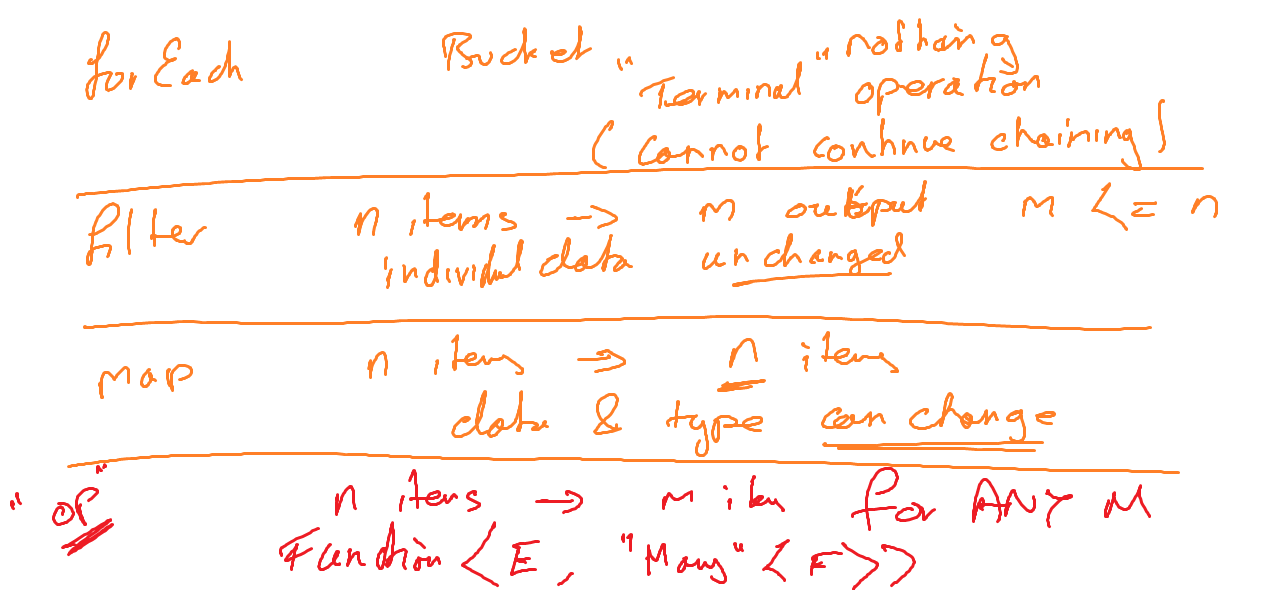 forEach Bucket nothing
"Terminal" operation
(cannot continue chaining)
filter n items -> m output m <= n
individul data unchanged
map n items -> n items
data & type can change
"op" n items -> m items for ANY M
Function<E, "Many"<F>>